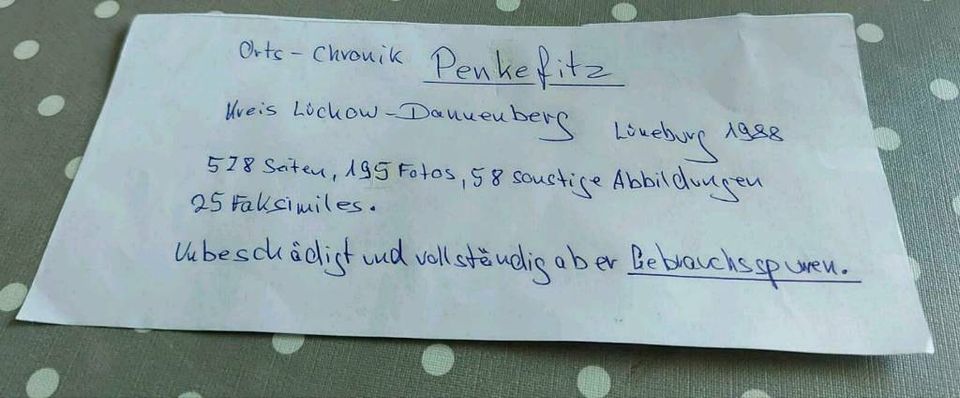 Orts-Chronik Penkefitz
Kreis Lüchow-Dannenberg Lüneburg 1988
578 Seiten, 195 Fotos, 58 sonstige Abbildungen
25 Faksimiles.
Unbeschädigt und vollständig aber Gebrauchsspuren.